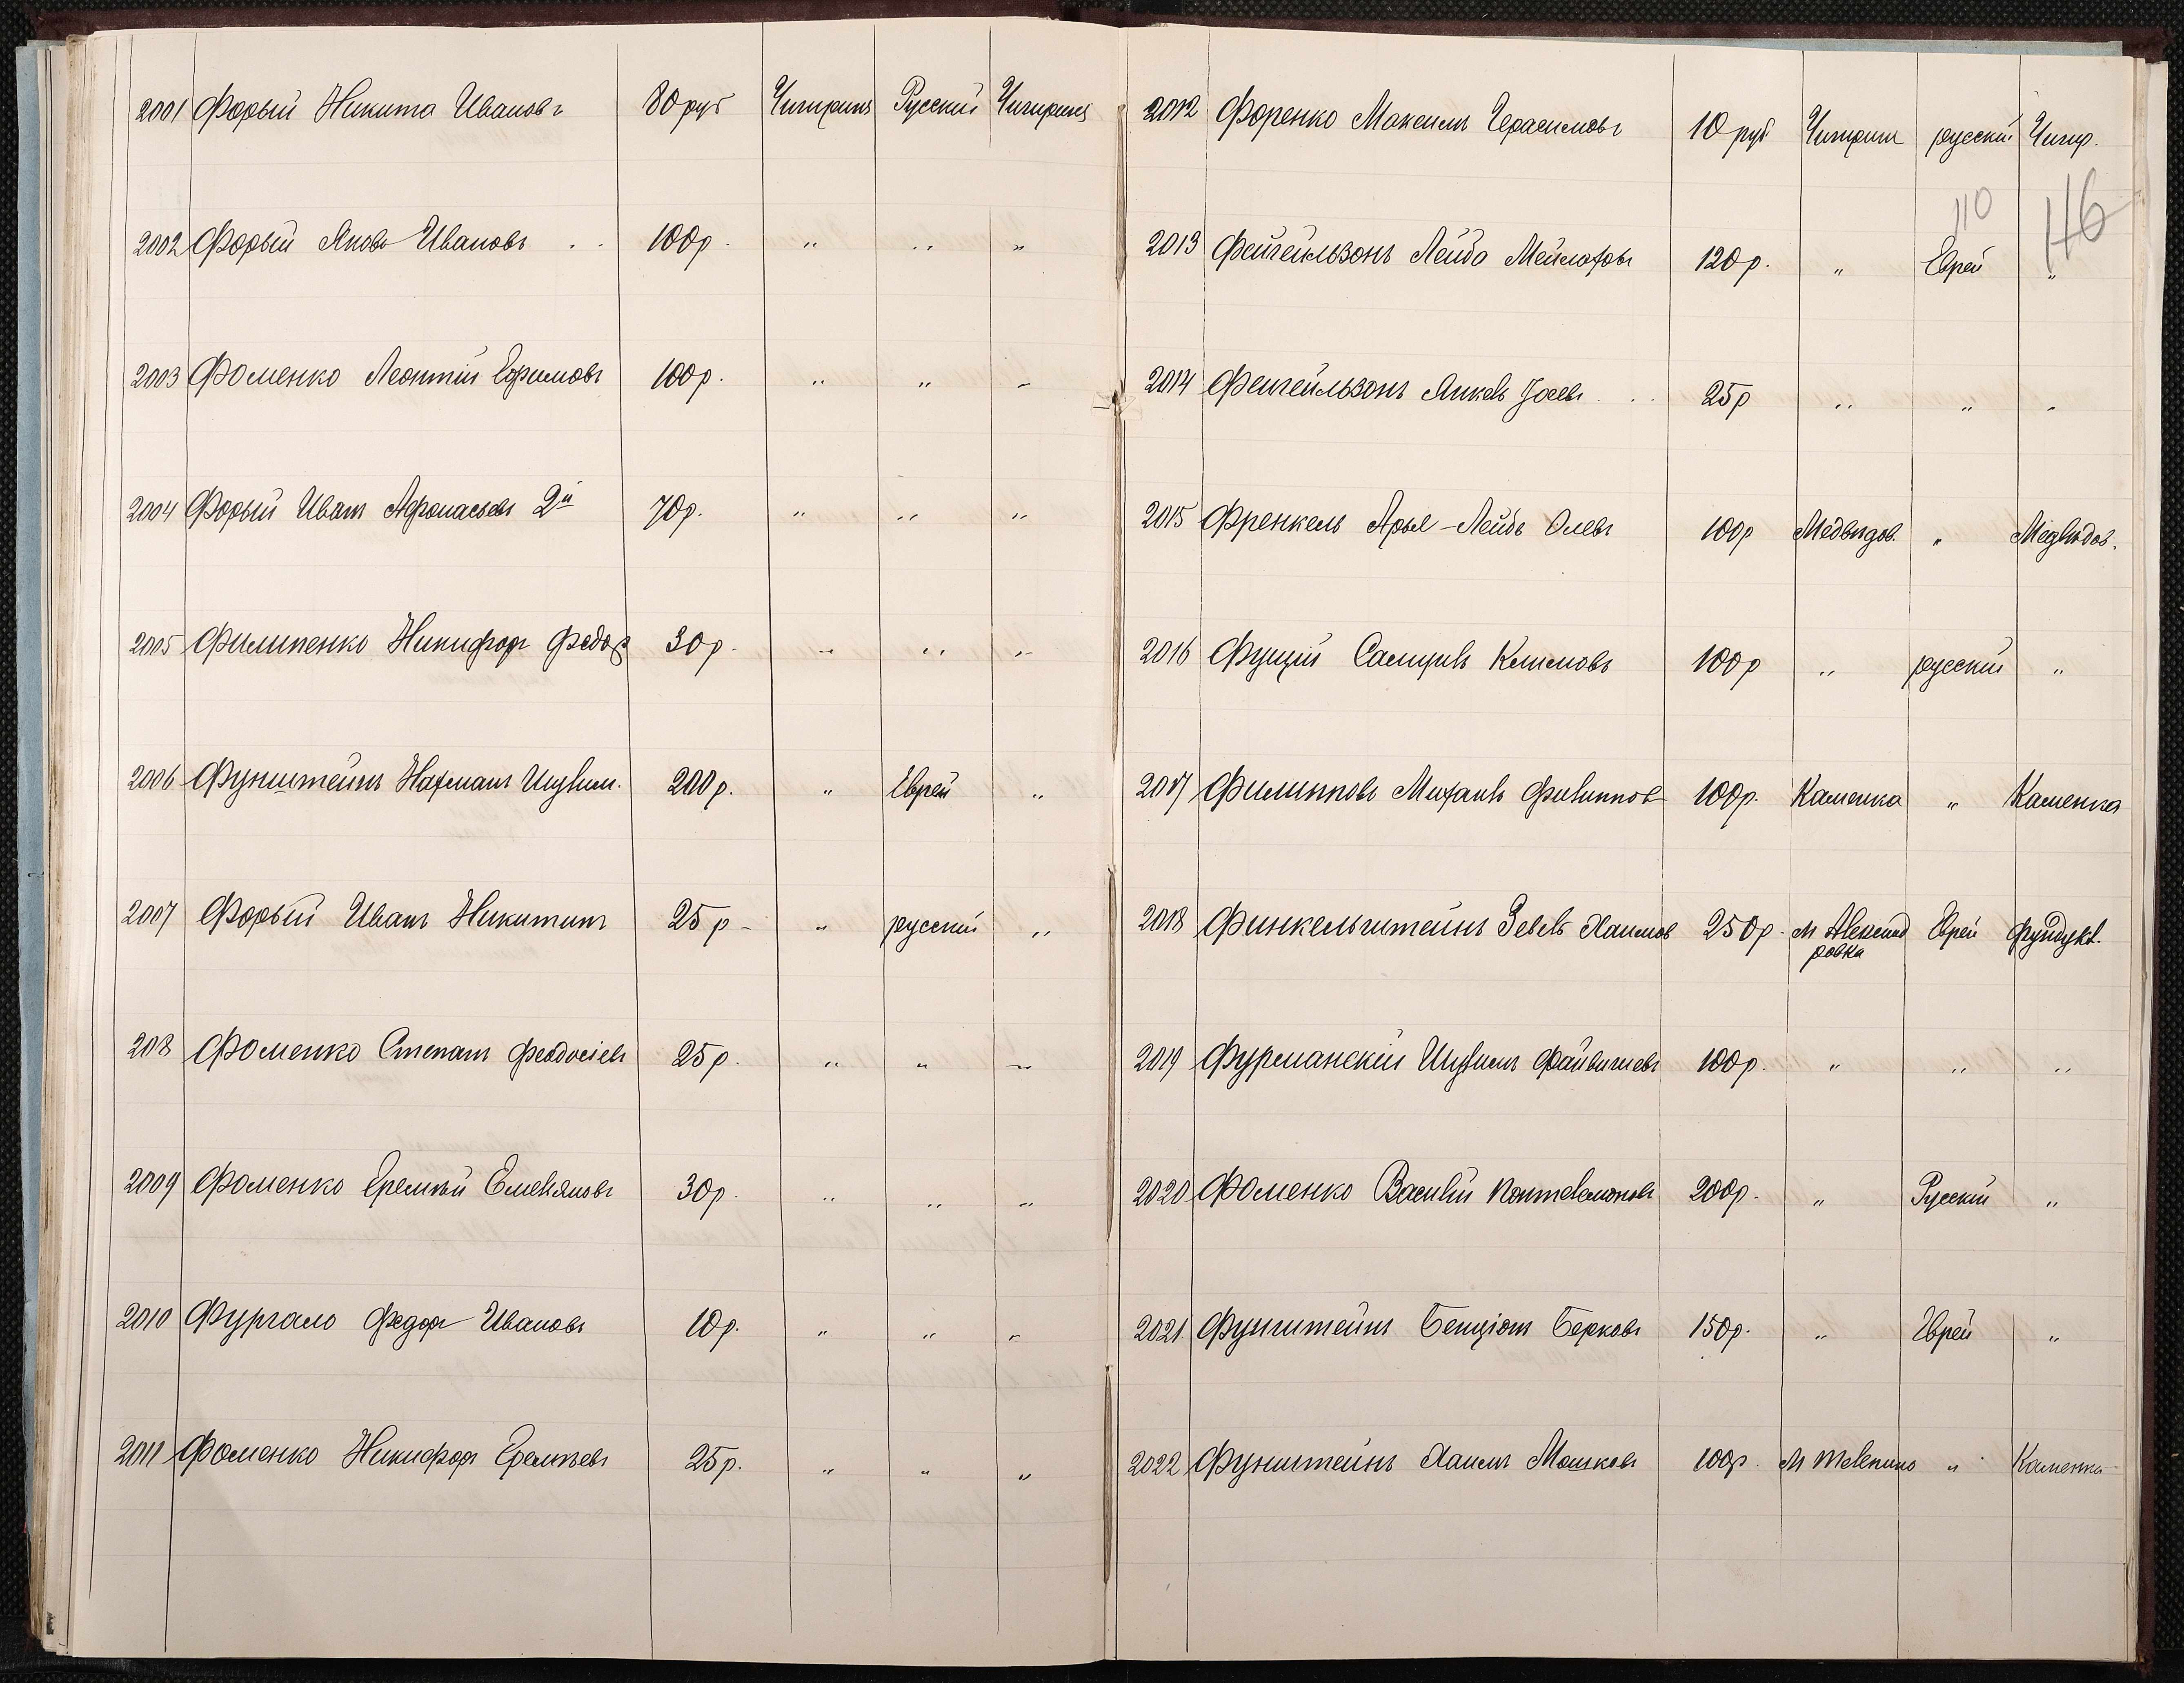 2001 Форый Никита Ивановъ 80 руб Чигиринъ Русский Чигиринъ
2002 Форый Яковъ Ивановъ . . 100р. " " "
2003 Фоменко Леонтій Ефимовъ 100р. " " "
2004 Форый Иванъ Афонасьевъ 2й 70р. " " "
2005 Филипенко Никифоръ Федор 30р. " " "
2006 Фунштейнъ Нахманъ 200р. " Еврей "
2007 Форый Иванъ Никитинъ 25р - " русский "
208 Фоменко Степанъ Феодосіевъ 25р. " " "
2009 Фоменко Еремѣй Емельяновъ 30р. " " "
2010 Фургало Федоръ Ивановъ 10р. " " "
2011 Фоменко Никифоръ Еремѣевъ 25р. " " "
2012 Форенко Максимъ Герасимовъ 10 руб Чигирин русский Чигир.
110 116
2013 Фейгейльзонъ Лейба Мейлаховъ 120р. " Еврей "
2014 Фейгейльзонъ Янкель . . 25р " " "
2015 Френкель Арье-Лейбъ 100р Медвѣдов. " Медвѣдов.
2016 Фущій Самуилъ Климовъ 100р " русский "
2017 Филиповъ Михаилъ Филиппов 100р. Каменка " Каменка
2018 Финкельштейнъ Зевель Хаимов 250р. м Александ Еврей Фундукл.
ровка
2019 Фурманскій Файвишевъ 100р. " " "
2020 Фоменко Василій Понтелемоновъ 200р. " Русский "
2021 Фунштейнъ Бенціонъ Берковъ 150р. " Еврей "
2022 Фунштейнъ Хаимъ Мошковъ 100р. М Телепино " Каменка